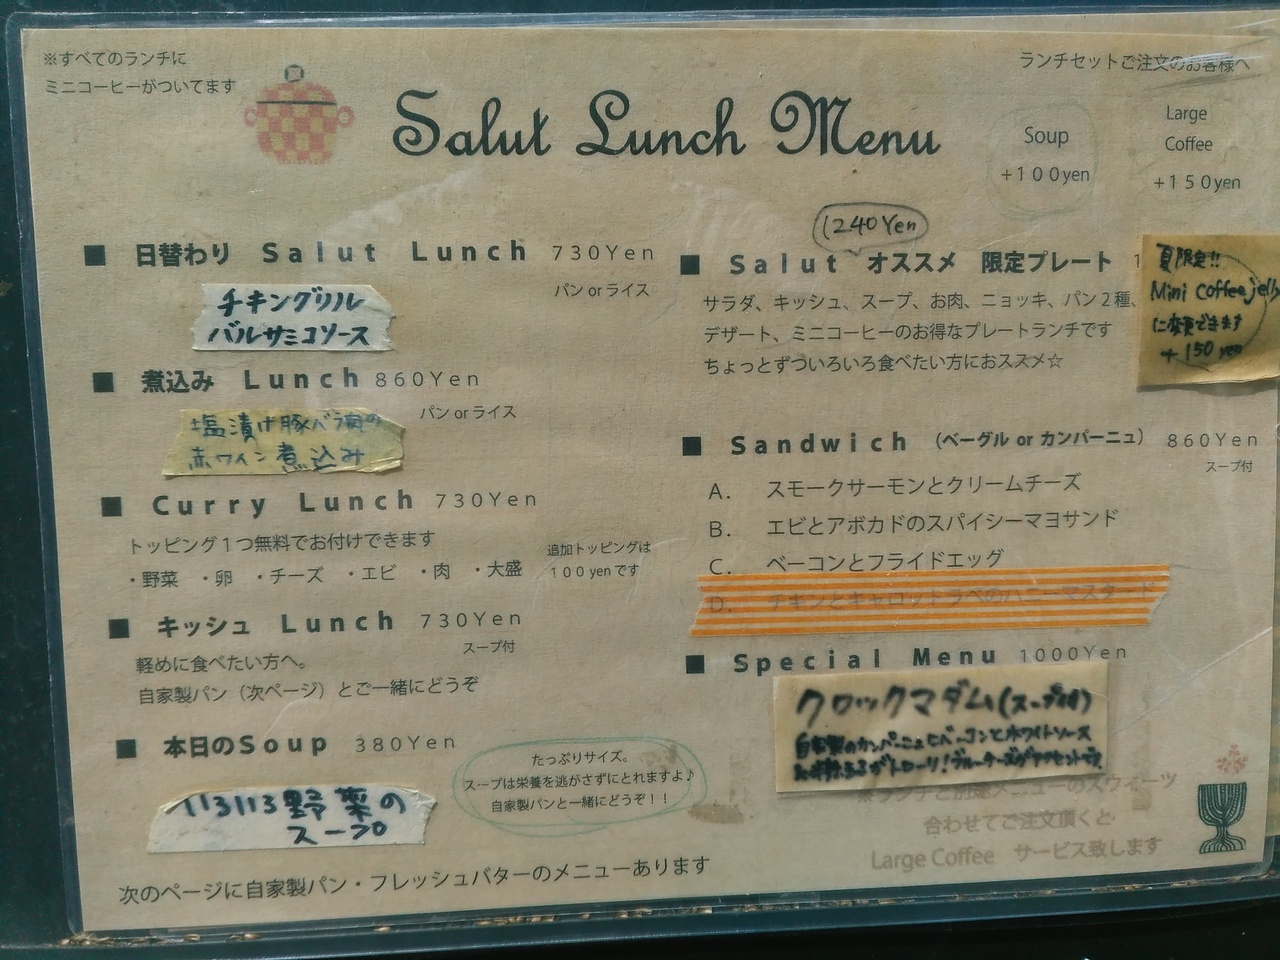 ※すべてのランチに
ミニコーヒーがついてます
Salut Lunch Menu
ランチセットご注文のお客様へ
Soup
+100yen
Large
Coffee
+150yen
■ 日替わり Salut Lunch 730Yen
パン or ライス
チキングリル
バルサミコソース
■ 煮込み Lunch 860Yen
パン or ライス
塩漬け豚バラ肉の
赤ワイン煮込み
■ Curry Lunch 730Yen
トッピング1つ無料でお付けできます
・野菜 ・卵 ・チーズ ・エビ ・肉 ・大盛
追加トッピングは
100yenです
■ キッシュ Lunch 730Yen
スープ付
軽めに食べたい方へ。
自家製パン（次ページ）とご一緒にどうぞ
■ 本日のSoup 380Yen
いろいろ野菜の
スープ
たっぷりサイズ。
スープは栄養を逃がさずにとれますよ♪
自家製パンと一緒にどうぞ！！
次のページに自家製パン・フレッシュバターのメニューあります
1240Yen
■ Salut オススメ 限定プレート 1
サラダ、キッシュ、スープ、お肉、ニョッキ、パン2種、
デザート、ミニコーヒーのお得なプレートランチです
ちょっとずついろいろ食べたい方におススメ☆
夏限定!!
Mini Coffee jelly
に変更できます
+150 yen
■ Sandwich （ベーグル or カンパーニュ） 860Yen
スープ付
A. スモークサーモンとクリームチーズ
B. エビとアボカドのスパイシーマヨサンド
C. ベーコンとフライドエッグ
D. チキンとキャロットラペのハニーマスタード
■ Special Menu 1000Yen
クロックマダム(スープ付)
自家製のカンパーニュにベーコンとホワイトソース
※ランチと別途メニューのスウィーツ
合わせてご注文頂くと
Large Coffee サービス致します